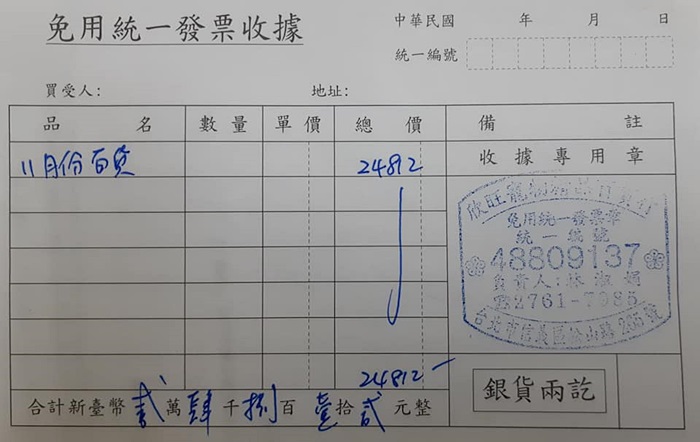 免用統一發票收據
中華民國 年 月 日
統一編號
買受人: 地址:
品名 數量 單價 總價 備註
11月份百貨 24812
收據專用章
免用統一發票章
統一編號
48809137
負責人:林淑娟
☎2761-7085
台北市信義區松山路265號
24812-
合計新臺幣貳萬肆千捌百壹拾貳元整
銀貨兩訖